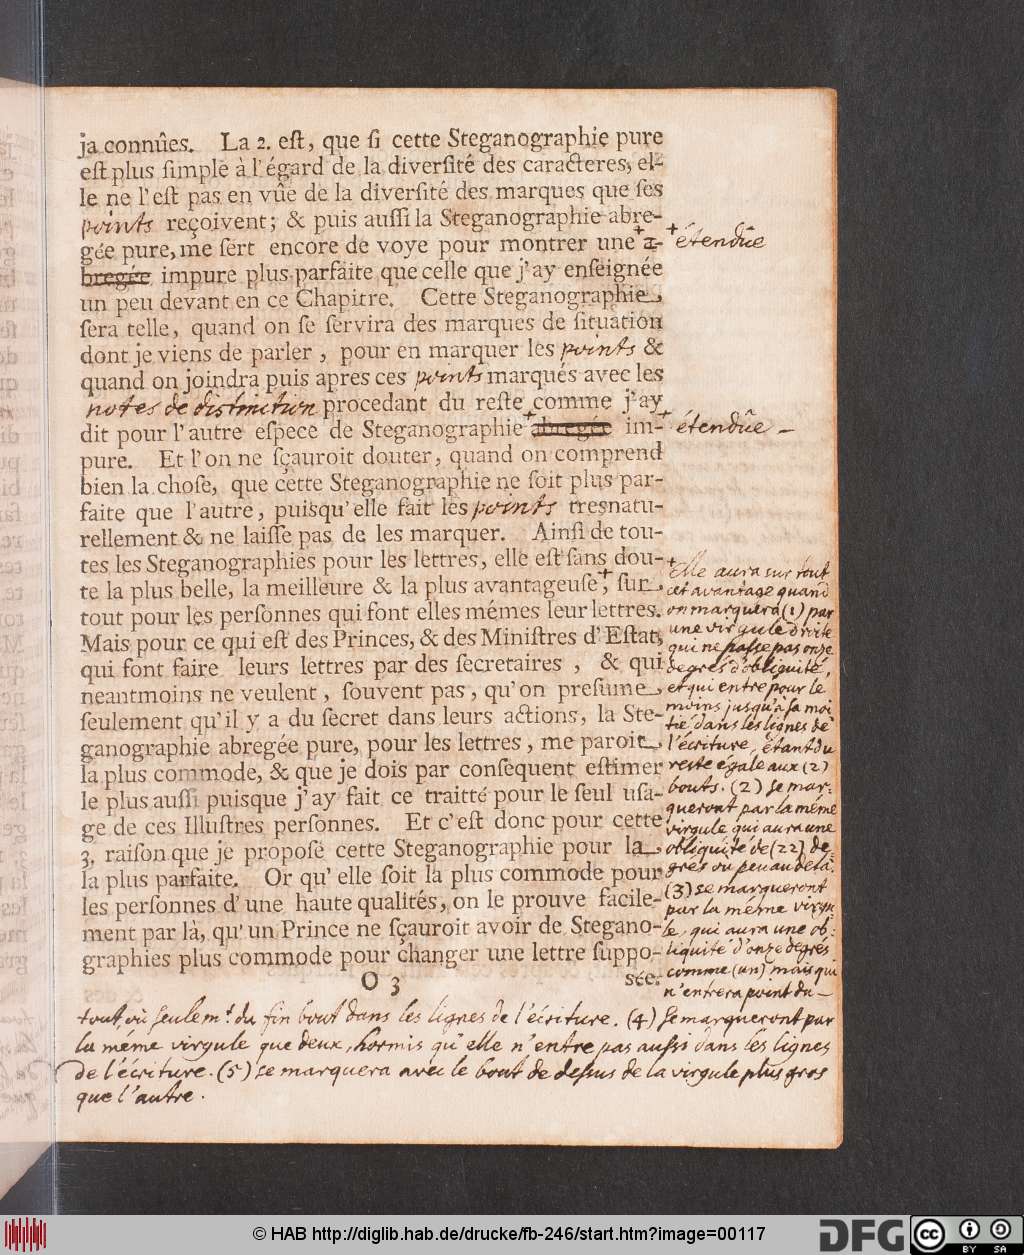 ja connûes. La 2. est, que si cette Steganographie pure
est plus simple à l'égard de la diversité des caracteres, el-
le ne l'est pas en vûe de la diversité des marques que ses
points reçoivent; & puis aussi la Steganographie abre-
gée pure, me sert encore de voye pour montrer une + a-
bregée impure plus parfaite que celle que j'ay enseignée
un peu devant en ce Chapitre. Cette Steganographie
sera telle, quand on se servira des marques de situation
dont je viens de parler, pour en marquer les points &
quand on joindra puis apres ces points marqués avec les
notes de distinction procedant du reste comme j'ay
dit pour l'autre espece de Steganographie + abregée im-
pure. Et l'on ne sçauroit douter, quand on comprend
bien la chose, que cette Steganographie ne soit plus par-
faite que l'autre, puisqu'elle fait les points tresnatu-
rellement & ne laisse pas de les marquer. Ainsi de tou-
tes les Steganographies pour les lettres, elle est sans dou-
te la plus belle, la meilleure & la plus avantageuse +, sur
tout pour les personnes qui font elles mémes leur lettres.
Mais pour ce qui est des Princes, & des Ministres d'Estat,
qui font faire leurs lettres par des secretaires, & qui
neantmoins ne veulent, souvent pas, qu'on presume
seulement qu'il y a du secret dans leurs actions, la Ste-
ganographie abregée pure, pour les lettres, me paroit
la plus commode, & que je dois par consequent estimer
le plus aussi puisque j'ay fait ce traitté pour le seul usa-
ge de ces Illustres personnes. Et c'est donc pour cette
3. raison que je propose cette Steganographie pour la
la plus parfaite. Or qu'elle soit la plus commode pour
les personnes d'une haute qualités, on le prouve facile-
ment par là, qu'un Prince ne sçauroit avoir de Stegano-
graphies plus commode pour changer une lettre suppo-
O 3 sée.
+ étendûe
+ étendûe
+ elle aura sur tout
cet avantage quand
on marquera (1) par
une virgule droite
qui ne passe pas onze
degrés d'obliquité,
et qui entre pour le
moins jusqu'à sa moi
tié dans les lignes de
l'écriture, étant du
reste égale aux (2)
bouts. (2) se mar-
queront par la méme
virgule qui aura une
obliquité de (22) de-
grés ou peu au delà.
(3) se marqueront
par la méme virgu
le, qui aura une ob-
liquité d'onze degrés
comme (un) mais qui
n'entrera point du
tout, où seulem.t du fin bout dans les lignes de l'écriture. (4) se marqueront par
la méme virgule que deux, hormis qu'elle n'entre pas aussi dans les lignes
de l'écriture. (5) se marquera avec le bout de dessus de la virgule plus gros
que l'autre.
© HAB http://diglib.hab.de/drucke/fb-246/start.htm?image=00117
DFG
CC
BY SA